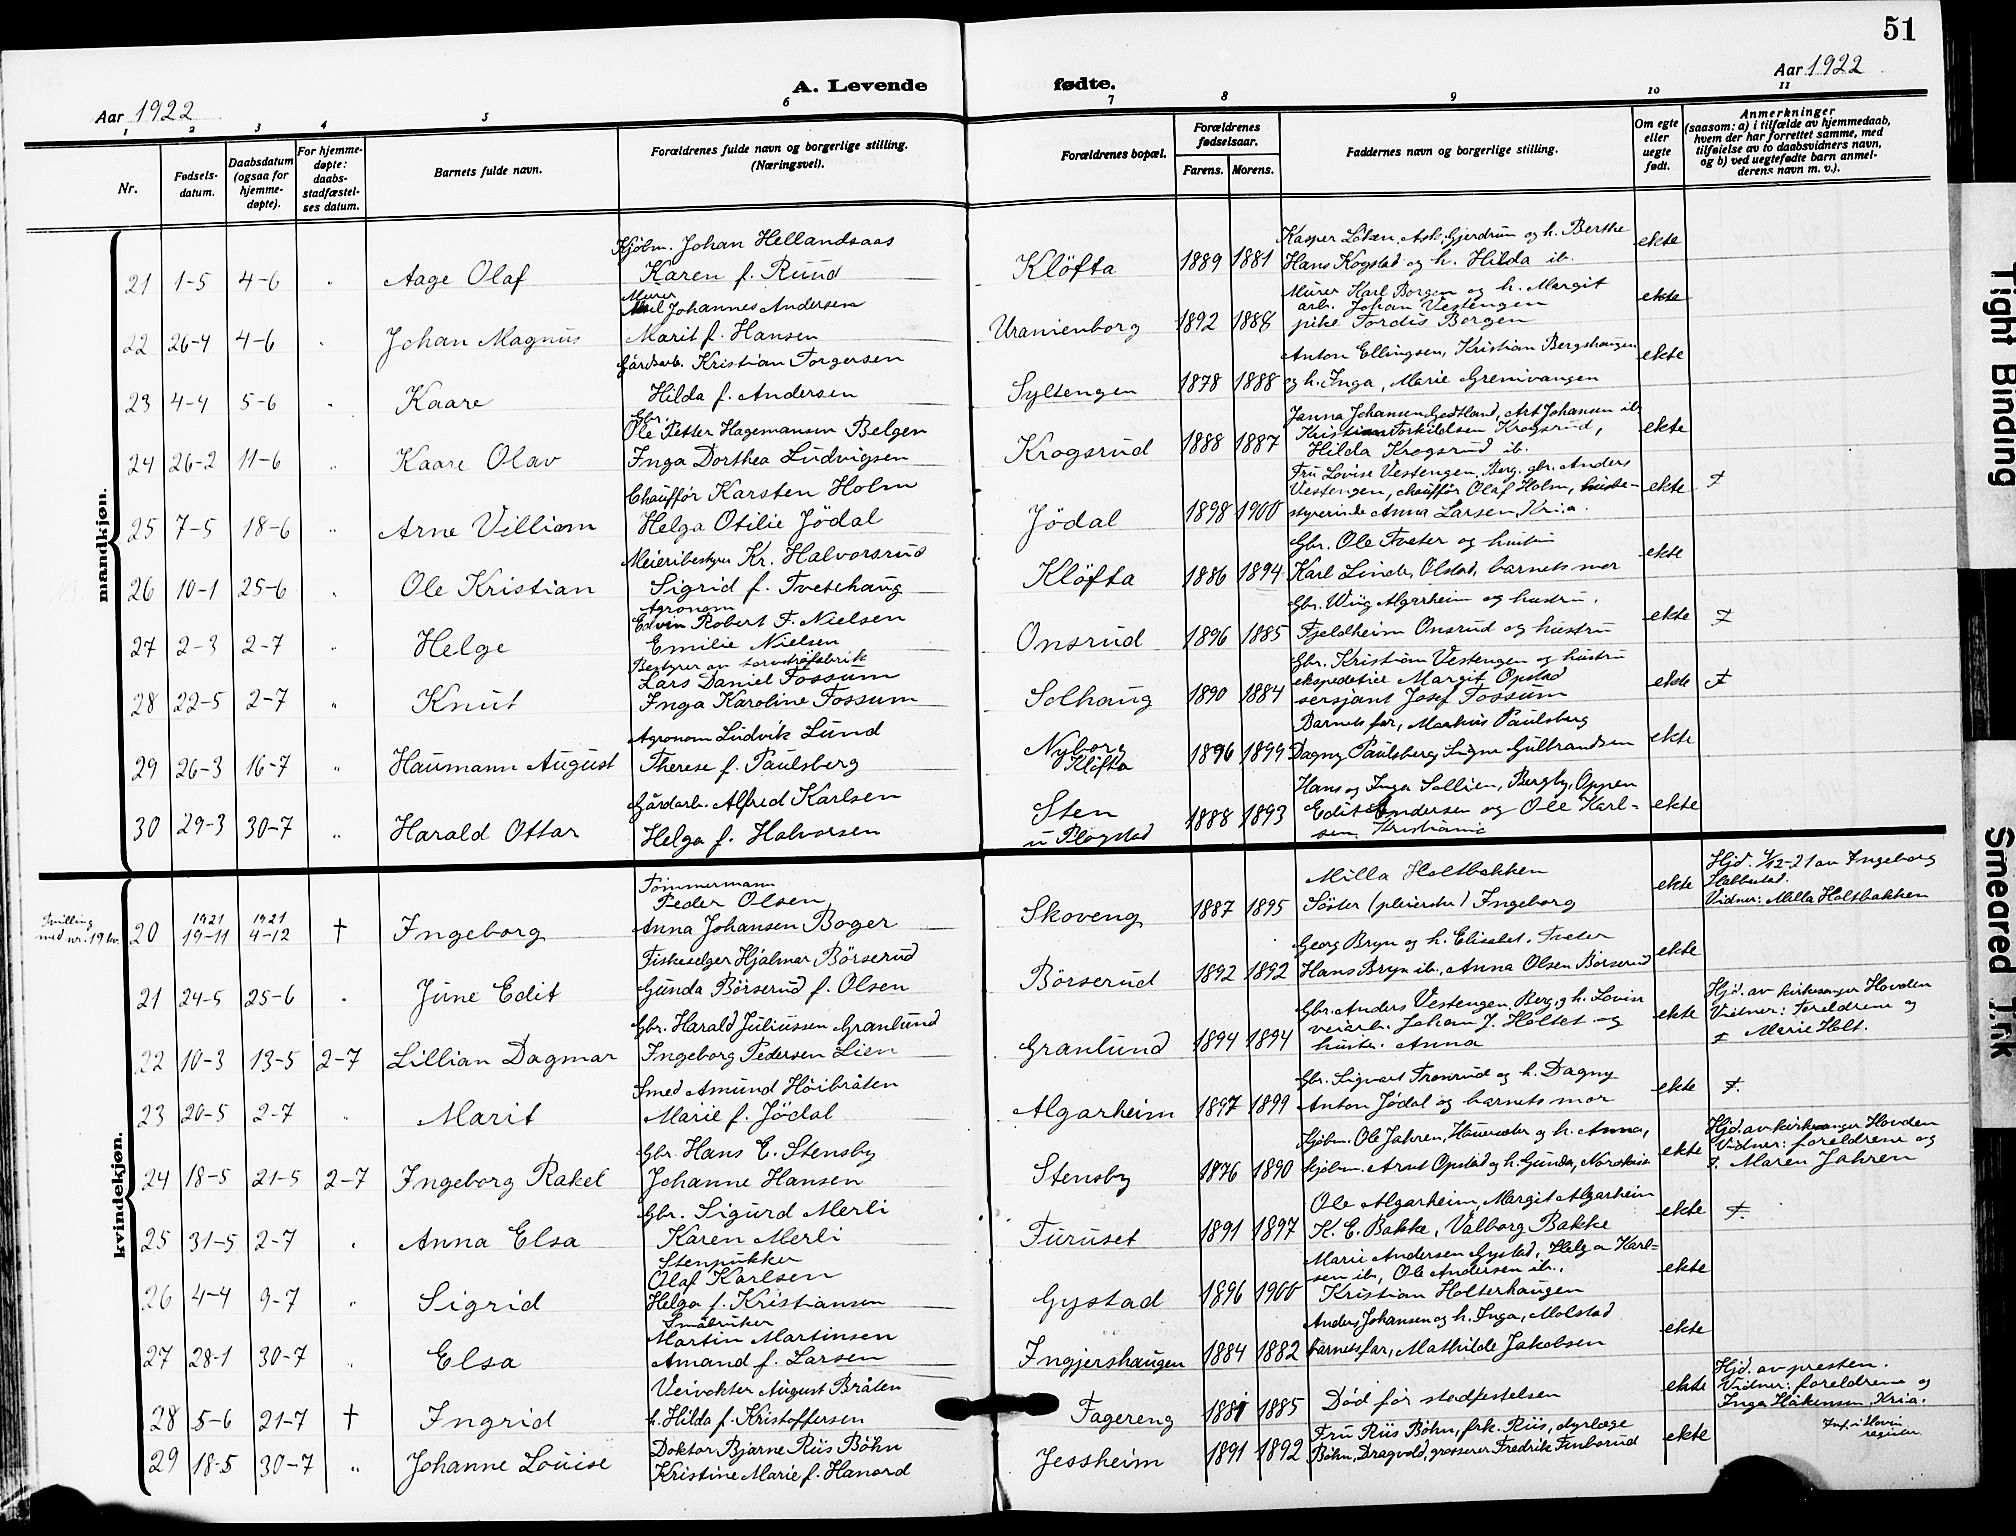 51
Aar 1922
A. Levende
fødte.
Aar 1922
1 2 3 4 5 6 7 8 9 10 11
Nr.
Fødsels-
datum.
Daabsdatum
(ogsaa for
hjemme-
døpte).
For hjemme-
døpte:
daabs-
stadfæstel-
ses datum.
Barnets fulde navn.
Forældrenes fulde navn og borgerlige stilling.
(Næringsvei).
Forældrenes bopæl.
Forældrenes
fødselsaar.
Farens. Morens.
Faddernes navn og borgerlige stilling.
Om egte
eller
uegte
født.
Anmerkninger
(saasom: a) i tilfælde av hjemmedaab,
hvem der har forrettet samme, med
tilføielse av to daabsvidners navn,
og b) ved uegtefødte barn anmel-
derens navn m. v.).
mandkjøn.
21 1-5 4-6 " Aage Olaf
Kjøbm. Johan Hellandsaas
Karen f. Ruud
Kløfta 1889 1881
Kasper Løken, Ask, Gjerdrum og h. Berthe
Hans Kogstad og h. Hilda ib.
ekte
22 26-4 4-6 " Johan Magnus
Murer
Johannes Andersen
Marit f. Hansen
Uranienborg 1892 1888
Murer Karl Borgen og h. Margit
arb. Johan Vestengen
pike Tordis Borgen
ekte
23 4-4 5-6 " Kaare
Gårdsarb. Kristian Torgersen
Hilda f. Andersen
Syltengen 1878 1888
Anton Ellingsen, Kristian Bergshaugen
og h. Inga, Marie Grenivangen
ekte
24 26-2 11-6 " Kaare Olav
Gbr.
Ole Petter Hagemansen Belgen
Inga Dorthea Ludvigsen
Krogsrud 1888 1887
Janna Johansen Godtland, Art Johansen ib.
Kristian Torkildsen Krogsrud,
Hilda Krogsrud ib.
ekte
25 7-5 18-6 " Arne Villiam
Chauffør Karsten Holm
Helga Otilie Jödal
Jödal 1898 1900
Fru Lovise Vestengen, Berg, gbr. Anders
Vestengen, chauffør Olaf Holm, huse-
styrerinde Anna Larsen, Kria.
ekte F
26 10-1 25-6 " Ole Kristian
Meieribestyrer Kr. Halvorsrud
Sigrid f. Tvetehaug
Kløfta 1886 1894
Gbr. Ole Tveter og hustru
Karl Linde, Olstad, barnets mor
ekte
27 2-3 2-7 " Helge
Agronom
Edvin Robert F. Nielsen
Emilie Nielsen
Onsrud 1896 1885
Gbr. Wiig Algarheim og hustru.
Fjeldheim Onsrud og hustru
ekte F
28 22-5 2-7 " Knut
Bestyrer av torvstrøfabrik
Lars Daniel Fossum
Inga Karoline Fossum
Solhaug 1890 1884
Gbr. Kristian Vestengen og hustru
ekspeditrice Margit Opstad
sersjant Josef Fossum
ekte F
29 26-3 16-7 " Haumann August
Agronom Ludvik Lund
Therese f. Paulsberg
Nyborg
Kløfta
1896 1899
Barnets far, Markus Paulsberg
Dagny Paulsberg, Signe Gulbrandsen
ekte
30 29-3 30-7 " Harald Ottar
Gårdarb. Alfred Karlsen
Helga f. Halvorsen
Sten
u. Plogstad
1888 1893
Hans og Inga Sollien, Bergby, Oppen
Edit Andersen og Ole Karl-
sen Kristiania
ekte
kvindekjøn.
Tvilling
med nr. 19 kv.
20 1921 19-11 1921 4-12 † Ingeborg
Tømmermann
Peder Olsen
Anna Johansen Boger
Skoveng 1887 1895
Milla Holtbakken
Söster (pleierske) Ingeborg
ekte
Hjd. 4/12-21 av Ingeborg
Vidner: Milla Holtbakken
21 24-5 25-6 " June Edit
Fiskeselger Hjalmar Börserud
Gunda Börserud f. Olsen
Börserud 1892 1892
Georg Bryn og h. Elisabet, Tveter
Hans Bryn ib., Anna Olsen Börserud
ekte
22 10-3 13-5 2-7 Lillian Dagmar
Gbr. Harald Juliussen Granlund
Ingeborg Pedersen Lien
Granlund 1894 1894
Gbr. Anders Vestengen, Berg, og h. Lovise
veiarb. Johan J. Holtet og
hustr. Anna
ekte
Hjd. av kirkesanger Hovden
Vidner: Foreldrene og
F Marie Holt.
23 20-5 2-7 " Marit
Smed Amund Höibråten
Marie f. Jödal
Algarheim 1897 1899
Gbr. Sigvart Tronrud og h. Dagny
Anton Jödal og barnets mor
ekte F.
24 18-5 21-5 2-7 Ingeborg Rakel
Gbr. Hans E. Stensby
Johanne Hansen
Stensby 1876 1890
Kjøbm. Ole Jahren, Hauerseter og h. Anna,
kjøbm. Arnt Opstad og h. Gunda, Nordkisa
ekte
Hjd. av kirkesanger Hovden
Vidner: foreldrene og
F. Maren Jahren
25 31-5 2-7 " Anna Elsa
Gbr. Sigurd Merli
Karen Merli
Furuset 1891 1897
Ole Algarheim, Margit Algarheim
K. E. Bakke, Valborg Bakke
ekte F.
26 4-4 9-7 " Sigrid
Stenpukker
Olaf Karlsen
Helga f. Kristiansen
Gystad 1896 1900
Marie Andersen Gystad, Helga Karl-
sen ib., Ole Andersen ib.,
Kristian Holterhaugen
ekte
27 28-1 30-7 " Elsa
Småbruker
Martin Martinsen
Amand f. Larsen
Ingjershaugen 1884 1882
Anders Johansen og h. Inga, Molstad
barnets far, Mathilde Jakobsen
ekte
28 5-6 21-7 † Ingrid
Veivokter August Bråten
h. Hilda f. Kristoffersen
Fagereng 1881 1885
Död før stadfestelsen
ekte
Hjd. av presten.
Vidner: foreldrene og
Inga Håkensen, Kria.
29 18-5 30-7 " Johanne Louise
Doktor Bjarne Riis Bøhn
Kristine Marie f. Hanord
Jessheim 1891 1892
Fru Riis Bøhn, frk. Riis, dyrlæge
Bøhn, Dragvold, grosserer Fredrik Finborud
ekte
Inf. i Hovin
register
Tight Binding
Smeared Ink